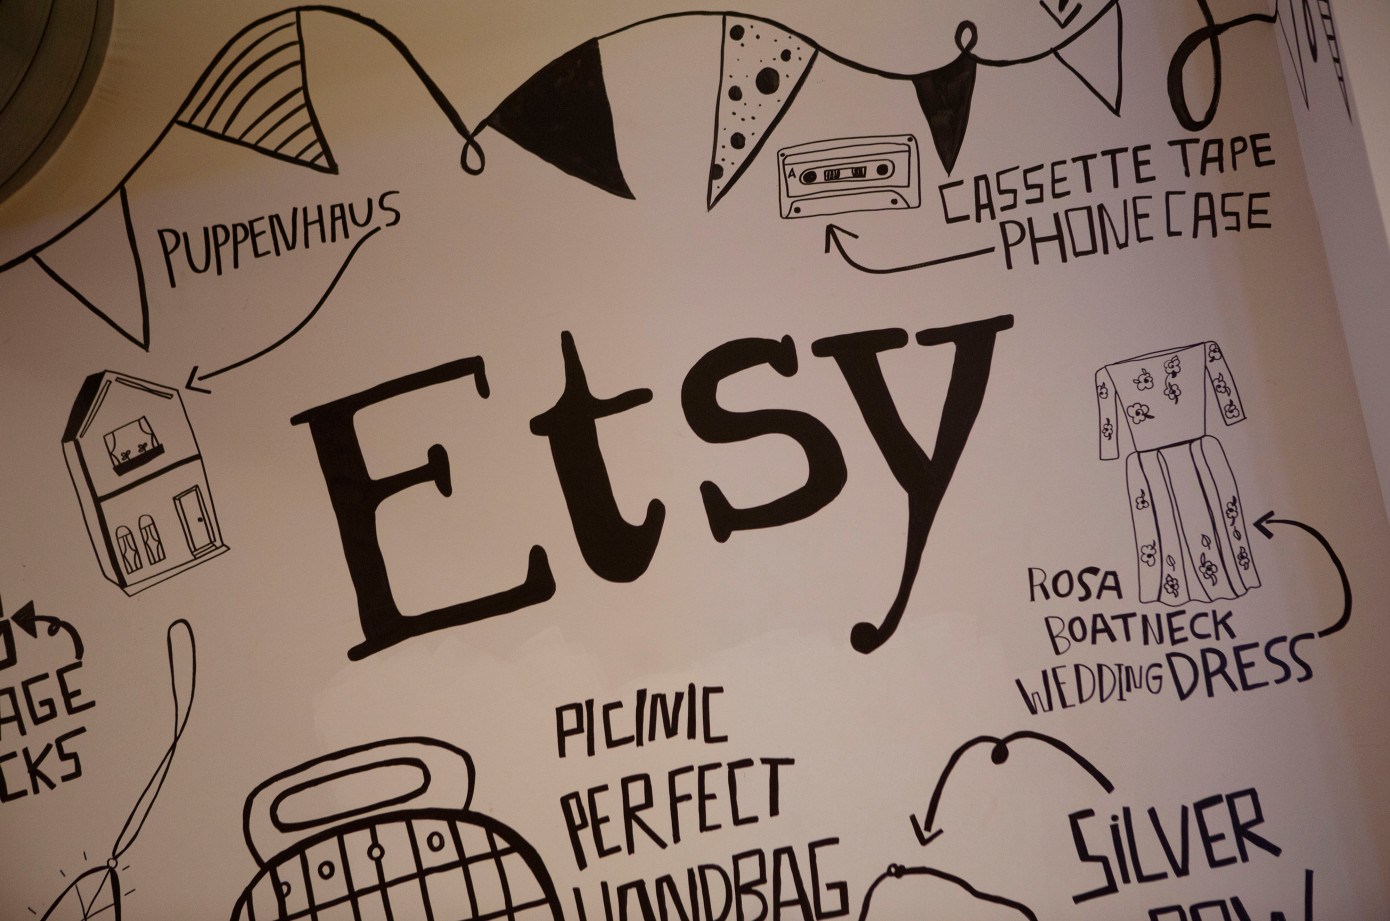 PUPPENHAUS
CASSETTE TAPE
PHONE CASE
A
Etsy
ROSA
BOATNECK
WEDDING DRESS
AGE
CKS
PICINIC
PERFECT
HANDBAG
SiLVER